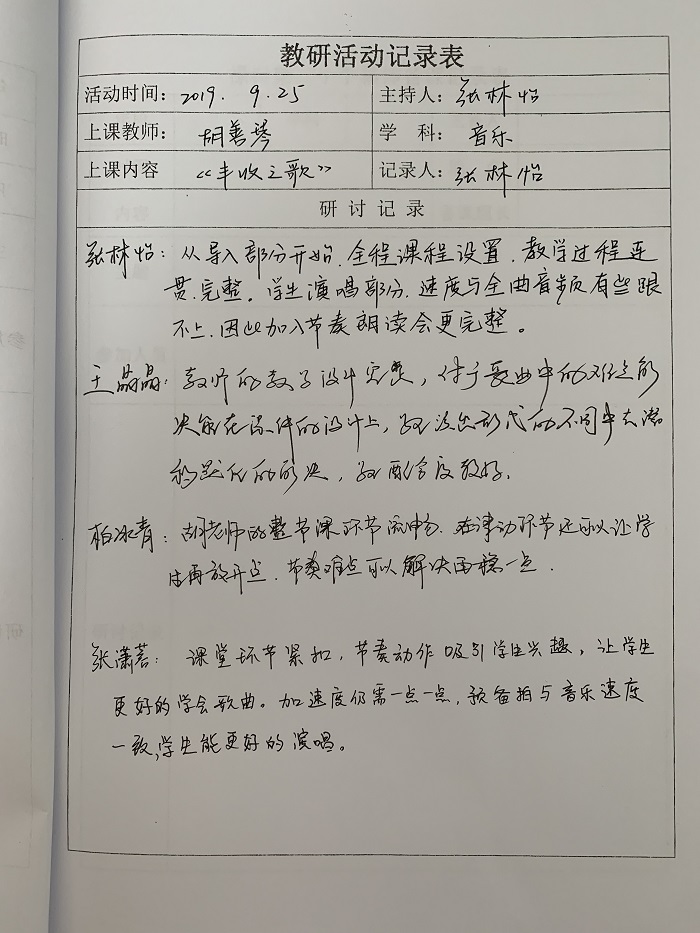 教研活动记录表
活动时间：2019. 9.25 主持人：张林怡
上课教师：胡善琴 学 科：音乐
上课内容 《丰收之歌》 记录人：张林怡
研 讨 记 录
张林怡：从导入部分开始.全程课程设置.教学过程连
贯.完整。学生演唱部分.速度与全曲音频有些跟
不上.因此加入节奏朗读会更完整。
王晶晶：教师的教学设计完整，对于歌曲中的难点解
决能在课件的设计上，
的不同中去潜
移默化的解决，配合度较好.
柏冰青：胡老师的整节课环节流畅.在律动环节还可以让学
生再放开点.节奏难点可以解决再稳一点.
张潇茗：课堂环节紧扣，节奏动作吸引学生兴趣，让学生
更好的学会歌曲。加速度仍需一点一点，预备拍与音乐速度
一致,学生能更好的演唱。